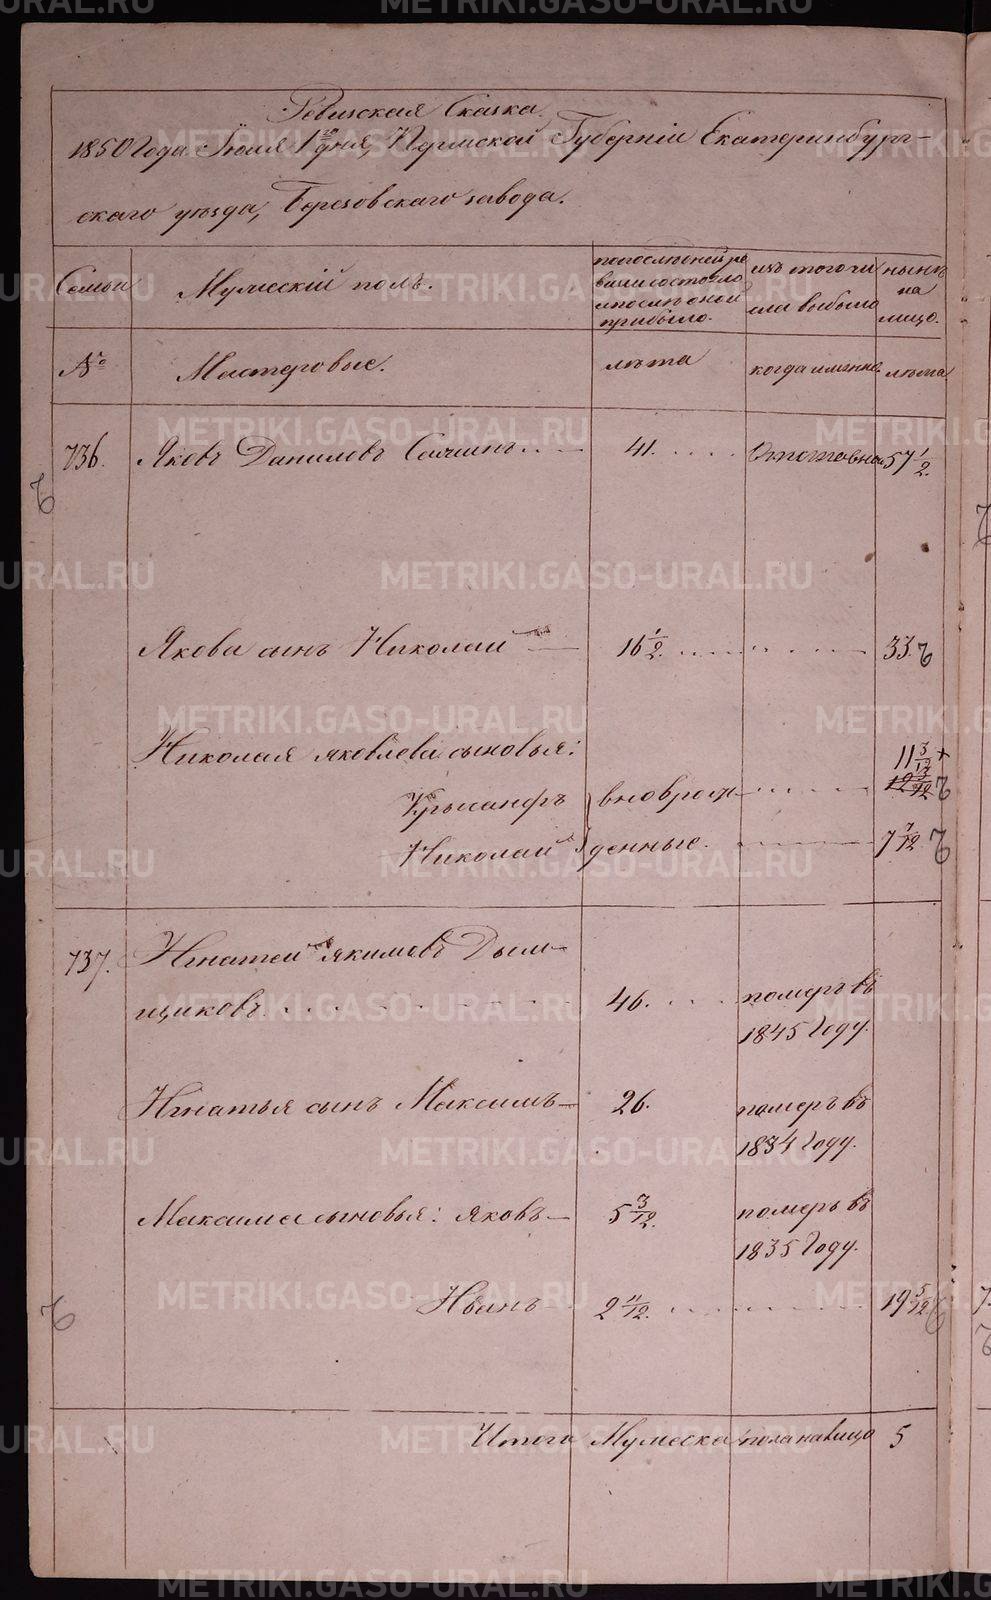 Ревизская Сказка.
1850 Года Июля 1го дня, Пермской Губерніи Екатеринбург-
скаго уѣзда, Березовскаго завода.
Семьи
Мужескій полъ.
по последней ре
визіи состояло
и послѣ оной
прибыло.
изъ того чи
сла выбыло
нынѣ
на
лицо.
№
Мастеровые.
лѣта
когда именно.
лѣта
736.
Яковъ Даниловъ
41.
57 1/2.
Якова сынъ Николай
16 1/2.
33.
Николая Яковлева сыновья:
11 3/12
Хрисанфъ
вноврож-
12 3/12
Николай
денные.
7 7/12
737.
Игнатей Якимовъ Дым-
щиковъ.
46.
померъ въ
1845 Году.
Игнатья сынъ Максимъ
26.
померъ въ
1834 Году.
Максима сыновья: Яковъ
5 3/12.
померъ въ
1835 Году.
Иванъ
2 11/12.
19 5/12
Итого Мужеска пола на лицо 5
METRIKI.GASO-URAL.RU